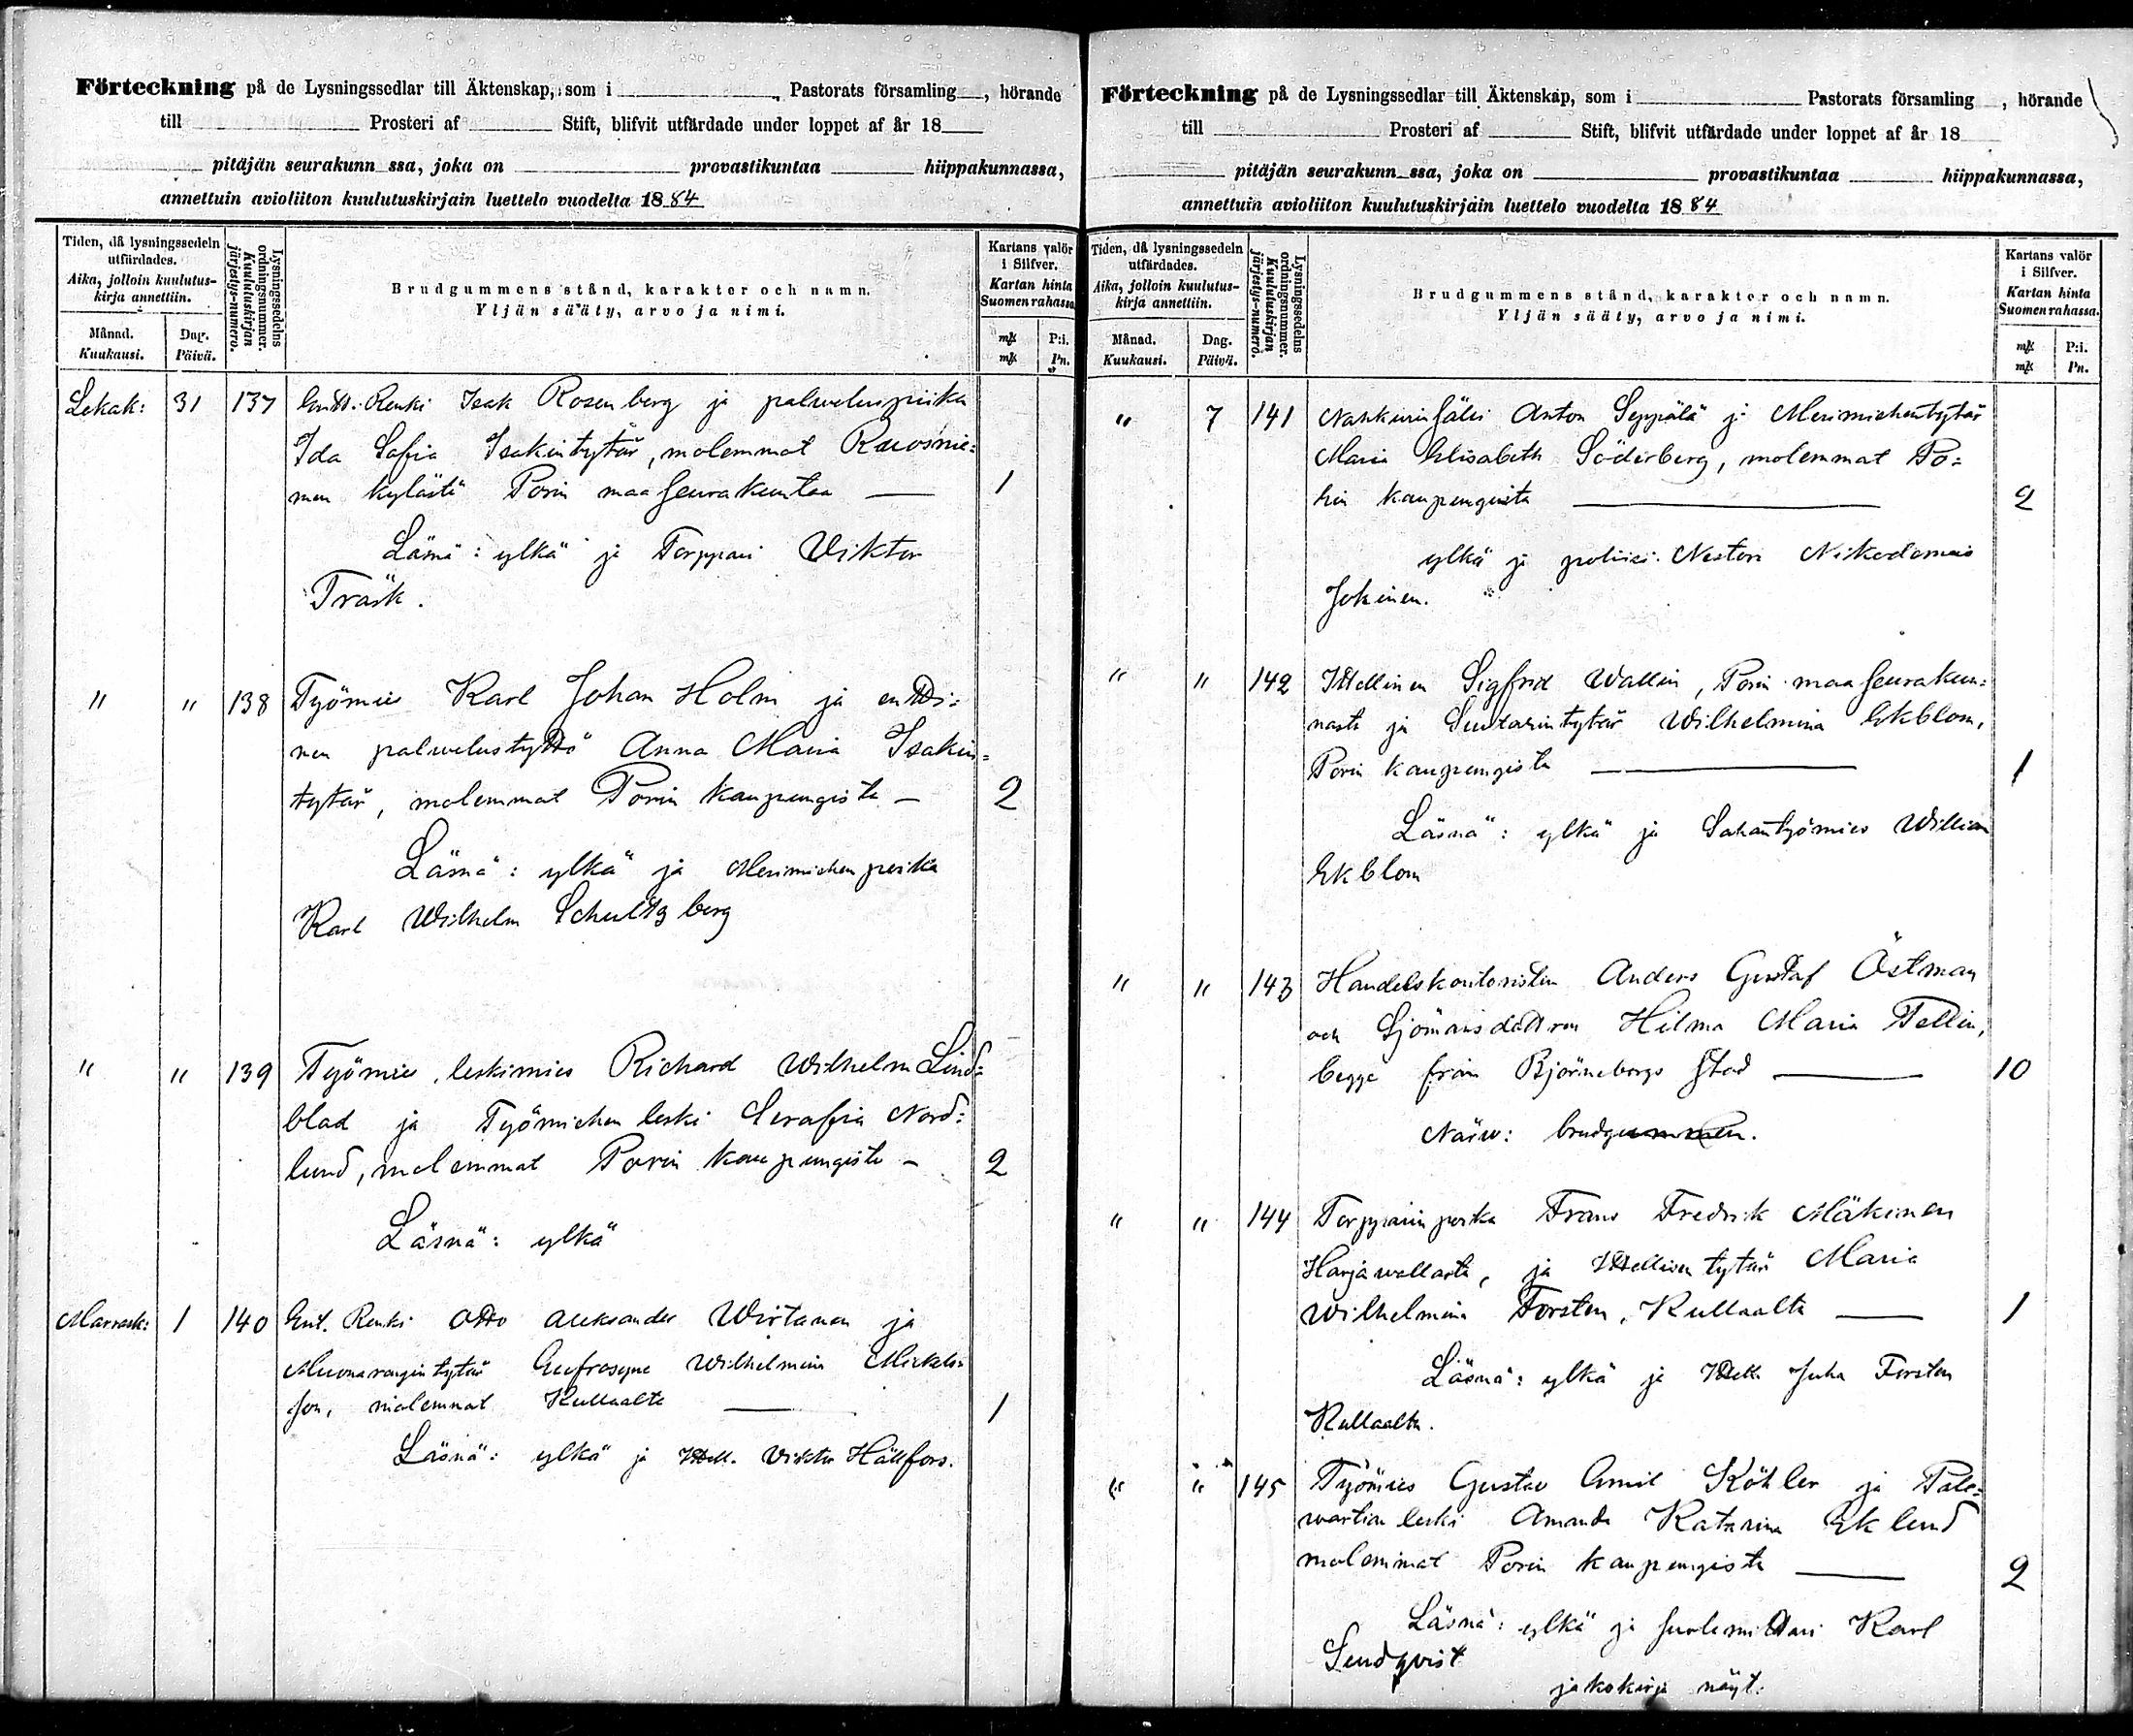 Förteckning på de Lysningssedlar till Äktenskap, som i Pastorats församling, hörande
till Prosteri af Stift, blifvit utfärdade under loppet af år 18
pitäjän seurakunn ssa, joka on provastikuntaa hiippakunnassa,
annettuin avioliiton kuulutuskirjain luettelo vuodelta 1884
Tiden, då lysningssedeln
utfärdades.
Aika, jolloin kuulutus-
kirja annettiin.
Månad.
Kuukausi.
Dag.
Päivä.
Lysningssedelns
ordningsnummer.
Kuulutuskirjan
järjestys-numero.
Brudgummens stånd, karakter och namn.
Yljän sääty, arvo ja nimi.
Kartans valör
i Silfver.
Kartan hinta
Suomen rahassa.
mk P:i.
mk Pn.
Lokak: 31 137 Entt. Renki Isak Rosenberg ja palweluspiika
Ida Sofia Isakintytär, molemmat Ruosnie=
men kylästä Porin maaseurakuntaa — 1
Läsnä: ylkä ja Torppari Viktor
Träsk.
" " 138 Työmies Karl Johan Holm ja entti=
nen palwelustyttö Anna Maria Isakin=
tytär, molemmat Porin kaupungista — 2
Läsnä: ylkä ja Merimiehen poika
Karl Wilhelm Schultzberg
" " 139 Työmies, leskimies Richard Wilhelm Lind=
blad ja Työmiehen leski Serafia Nord=
lund, molemmat Porin kaupungista — 2
Läsnä: ylkä
Marrask: 1 140 Ent. Renki Otto Aleksander Wirtanen ja
Muonarengin tytär Eufrosyne Wilhelmina Mickels=
son, molemmat Kullaalta — 1
Läsnä: ylkä ja Ittell. Viktor Hällfors.
Förteckning på de Lysningssedlar till Äktenskap, som i Pastorats församling, hörande
till Prosteri af Stift, blifvit utfärdade under loppet af år 18
pitäjän seurakunn ssa, joka on provastikuntaa hiippakunnassa,
annettuin avioliiton kuulutuskirjain luettelo vuodelta 1884
Tiden, då lysningssedeln
utfärdades.
Aika, jolloin kuulutus-
kirja annettiin.
Månad.
Kuukausi.
Dag.
Päivä.
Lysningssedelns
ordningsnummer.
Kuulutuskirjan
järjestys-numero.
Brudgummens stånd, karakter och namn.
Yljän sääty, arvo ja nimi.
Kartans valör
i Silfver.
Kartan hinta
Suomen rahassa.
mk P:i.
mk Pn.
" 7 141 Nahkurinsälli Anton Seppälä ja Merimiehentytär
Maria Elisabeth Söderberg, molemmat Po=
rin kaupungista — 2
ylkä ja poliisi Nestori Nikodemus
Jokinen.
" " 142 Ittellinen Sigfrid Wallin, Porin maaseurakun=
nasta ja Suutarintytär Wilhelmina Ekblom,
Porin kaupungista — 1
Läsnä: ylkä ja Sahantyömies William
Ekblom
" " 143 Handelskontoristen Anders Gustaf Östman
och Sjömansdottren Hilma Maria Tellin,
begge från Björneborgs stad — 10
Närv: brudgummen.
" " 144 Torpparin poika Frans Fredrik Mäkinen
Harjawallasta, ja Ittellisen tytär Maria
Wilhelmina Forsten, Kullaalta — 1
Läsnä: ylkä ja Ittell. Juha Forsten
Kullaalta.
" " 145 Työmies Gustav Emil Köhler ja Palo=
wartian leski Amanda Katarina Eklund
molemmat Porin kaupungista — 2
Läsnä: ylkä ja Karl
Sundqvist
jakokirja näyt: